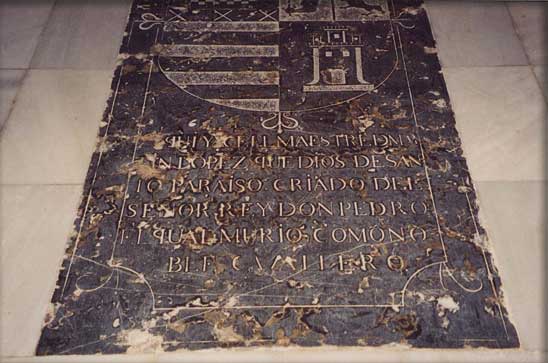 QUI YACE EL MAESTRE DN MA
IN LOPEZ QUE DIOS DE SAN
TO PARAISO CRIADO DEL
SENOR REY DON PEDRO
EL QUAL MURIO COMO NO
BLE CAVALLERO